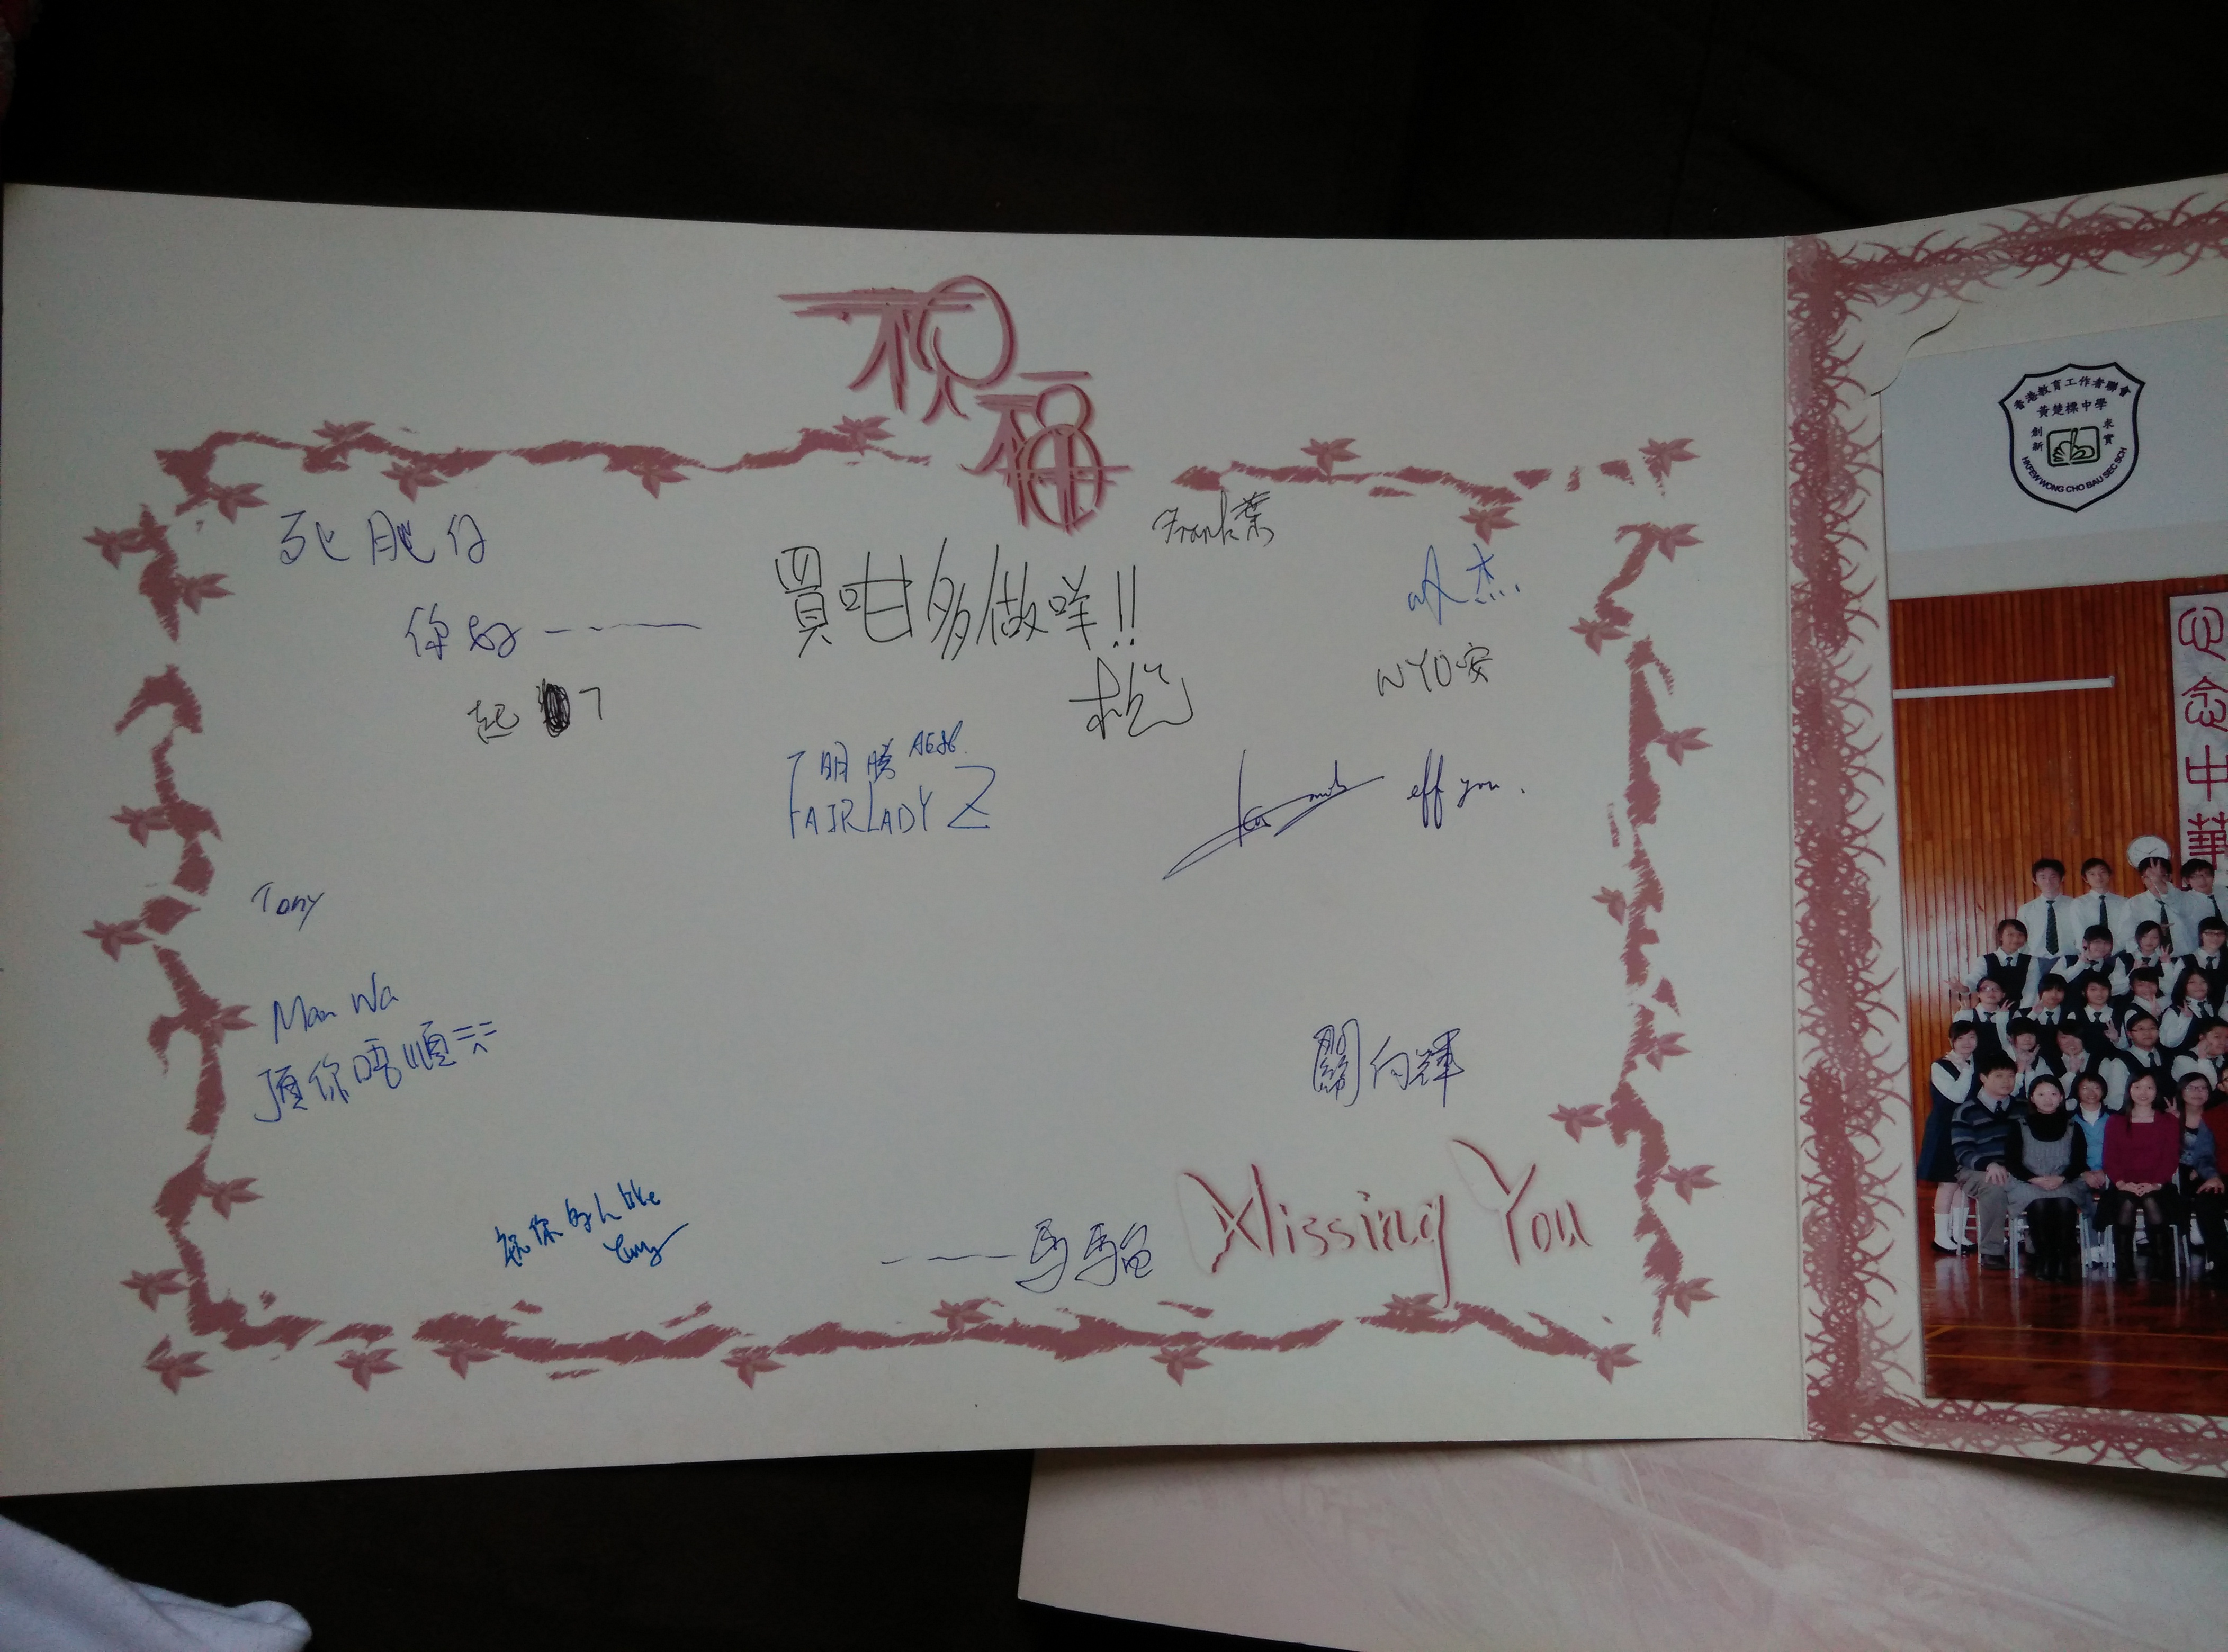 祝福
死肥仔
你好
起
買咁多做咩!!
Frank葉
杰
NYO安
明勝 AE86.
FAIRLADY Z
eff you.
Tony
Man Wa
頂你唔順
關向輝
祝你的h like
Missing You
香港教育工作者聯會
黃楚標中學
創新
求實
HKFEW WONG CHO BAU SEC SCH
心念中華